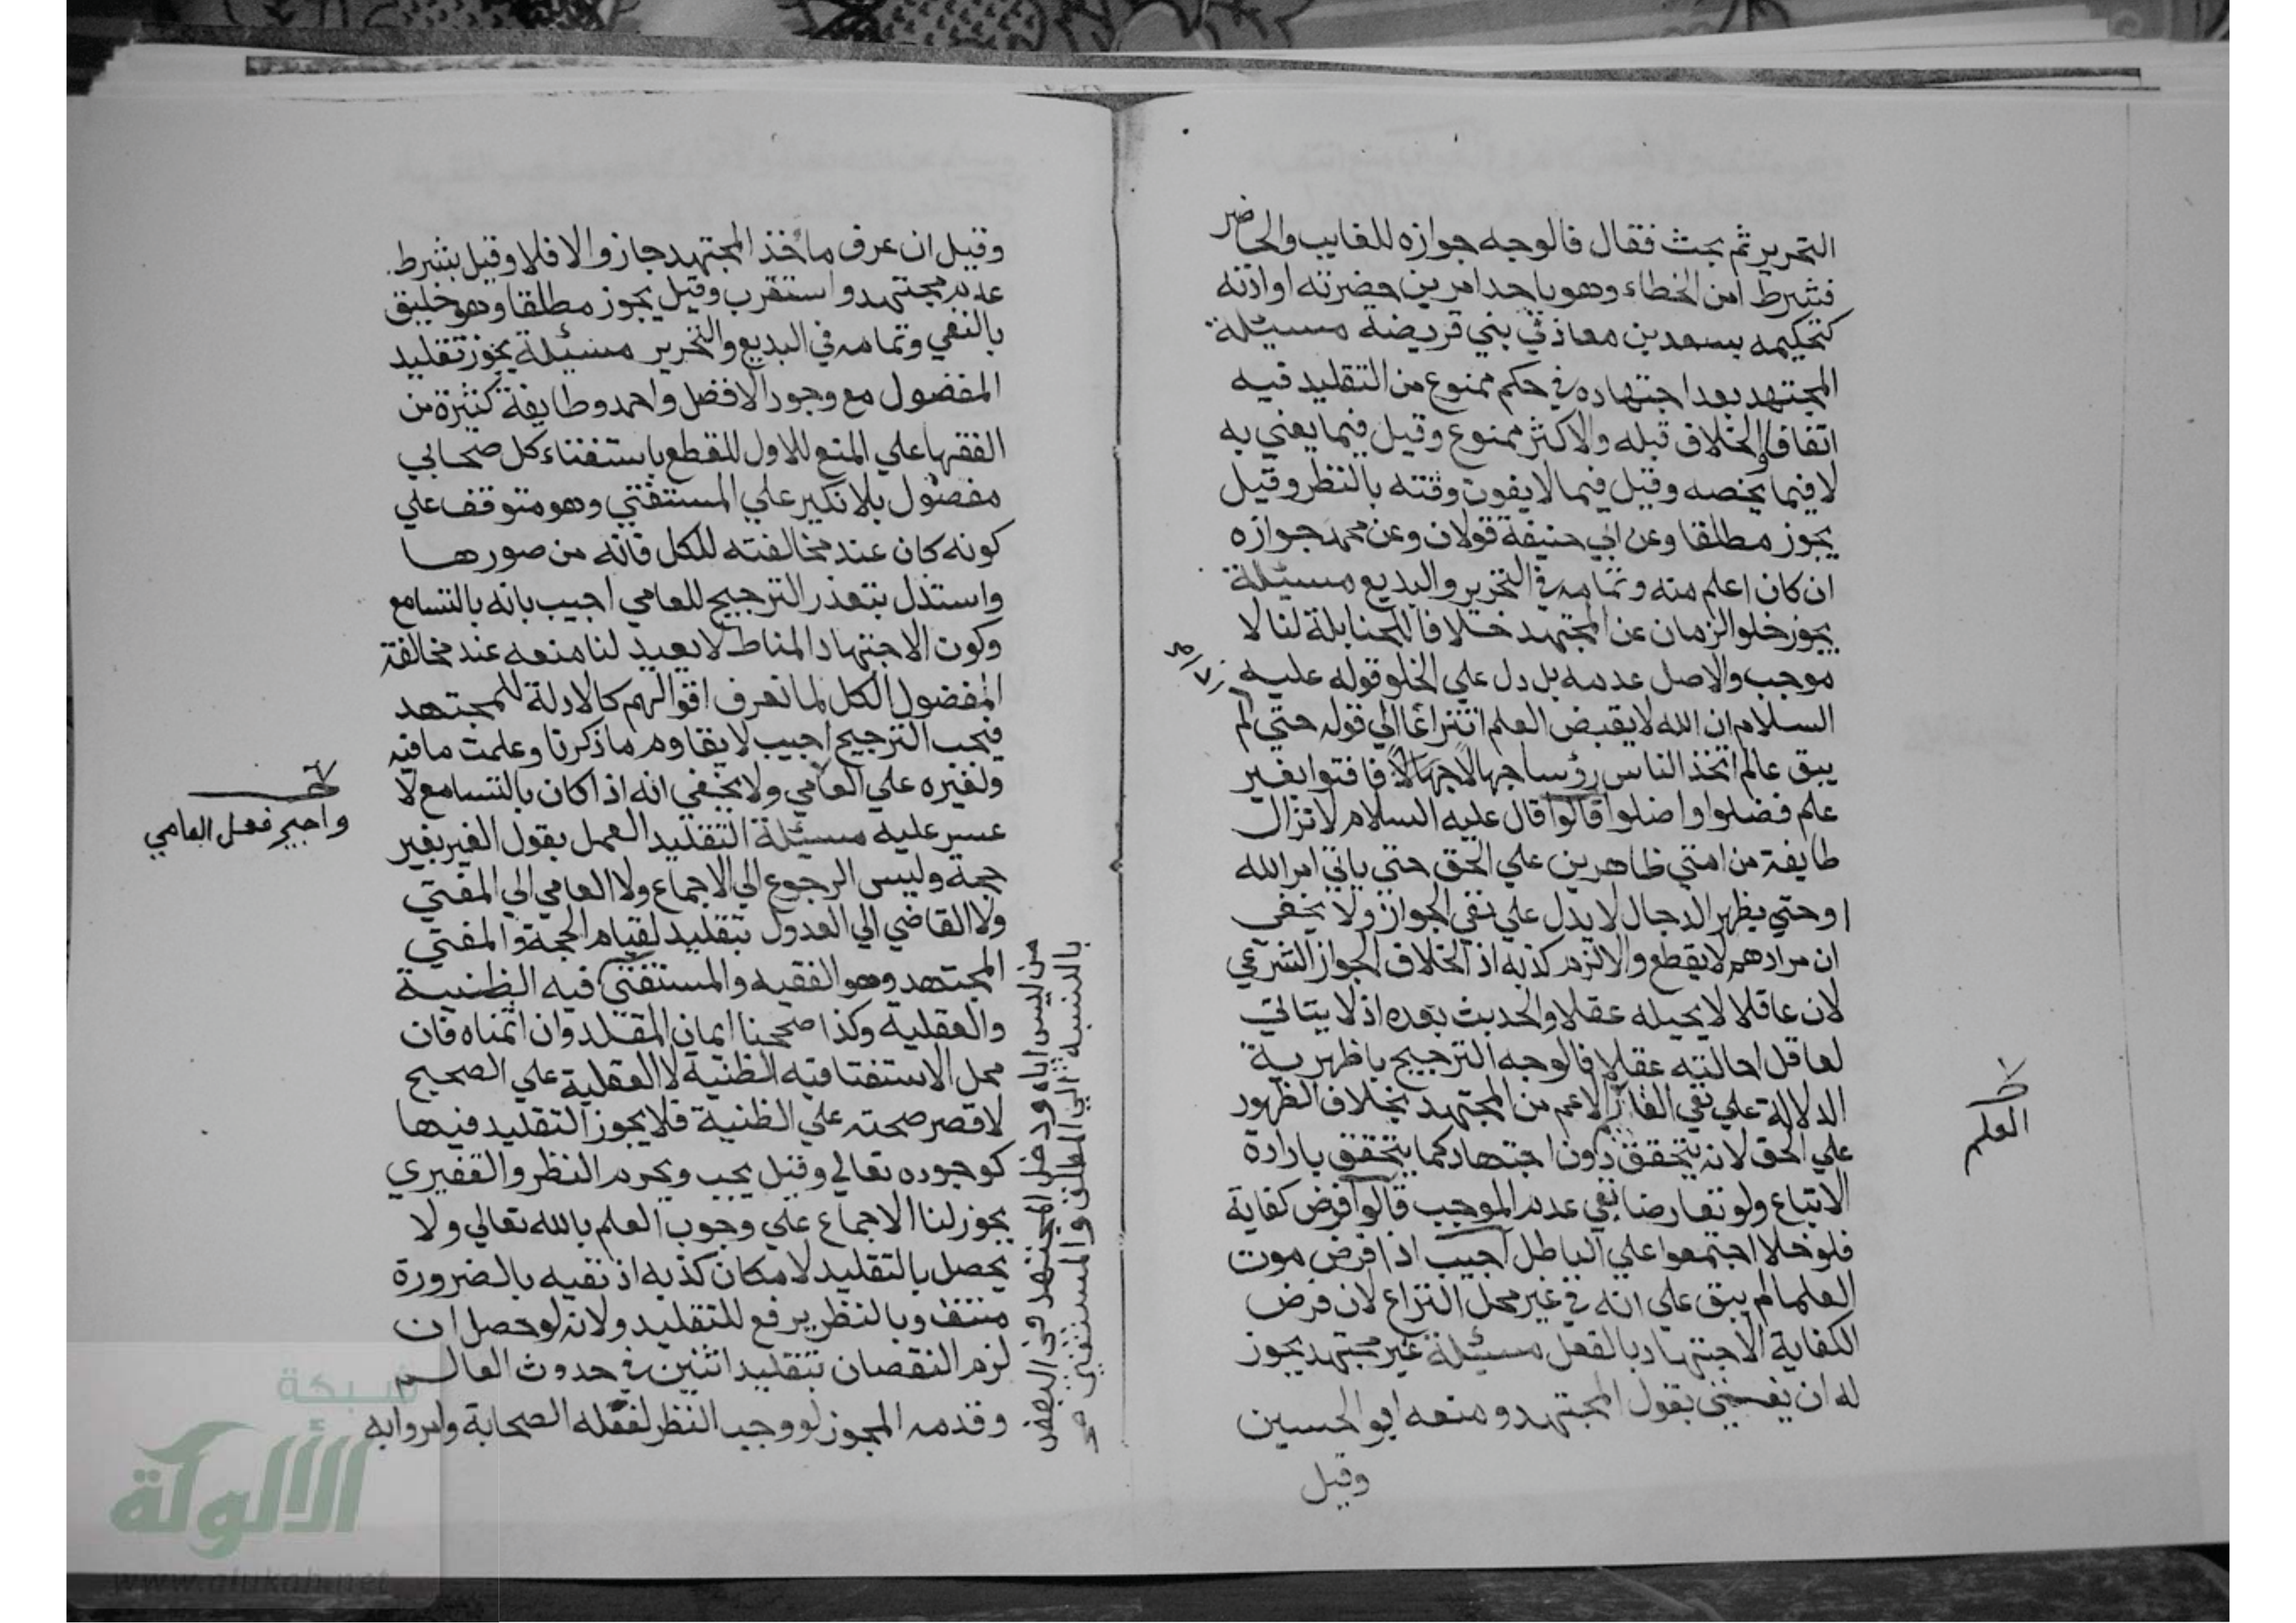 التحرير ثم بحث فقال فالوجه جوازه للغايب والحاضر
فشرط امن الخطاء وهو باحد امرين حضرته او اذنه
كتحكيمه بسعد بن معاذ في بني قريضة مسئلة
المجتهد بعد اجتهاده في حكم ممنوع من التقليد فيه
اتفاقا والخلاف قبله والاكثر ممنوع وقيل فيما يفتي به
لا فيما يخصه وقيل فيما لا يفوت وقته بالنظر وقيل
يجوز مطلقا وعن ابي حنيفة قولان وعن محمد جوازه
ان كان اعلم منه وتمامه في التحرير والبديع مسئلة
يجوز خلو الزمان عن المجتهد خلافا للحنابلة لنا لا
موجب والاصل عدمه بل دل علي الخلو قوله عليه
السلام ان الله لا يقبض العلم انتزاعا الي قوله حتي لم
يبق عالم اتخذ الناس رؤسا جهالا فافتوا بغير
علم فضلوا واضلوا قالوا قال عليه السلام لا تزال
طايفة من امتي ظاهرين علي الحق حتي ياتي امر الله
او حتي يظهر الدجال لا يدل علي نفي الجواز ولا يخفي
ان مرادهم لا يقطع والا لزم كذبه اذ الخلاف الجواز الشرعي
لان عاقلا لا يحيله عقلا والحديث بعده اذ لا يتاتي
لعاقل احالته عقلا فالوجه الترجيح باظهرية
الدلالة علي نفي العالم الاعم من المجتهد بخلاف الظهور
علي الحق لانه يتحقق دون اجتهاد كما يتحقق بارادة
الاتباع ولو تعارضا بقي عدم الموجب قالوا فرض كفاية
فلو خلا اجتمعوا علي الباطل اجيب اذا فرض موت
العلما لم يبق علي انه في غير محل النزاع لان فرض
الكفاية الاجتهاد بالفعل مسئلة غير مجتهد يجوز
له ان يفتي بقول المجتهد ومنعه ابو الحسين
وقيل
العلم
وقيل ان عرف مأخذ المجتهد جاز والا فلا وقيل بشرط
عدم مجتهد واستقرب وقيل يجوز مطلقا وهو خليق
بالنفي وتمامه في البديع والتحرير مسئلة يجوز تقليد
المفضول مع وجود الافضل واحمد وطايفة كثيرة من
الفقها علي المنع للاول للقطع باستفتاء كل صحابي
مفضول بلا نكير علي المستفتي وهو متوقف علي
كونه كان عند مخالفته للكل فانه من صورها
واستدل بتعذر الترجيح للعامي اجيب بانه بالتسامع
وكون الاجتهاد المناط لا يعيد لنا منعه عند مخالفة
المفضول الكل لما تعرف اقوالهم كالادلة للمجتهد
فيجب الترجيح اجيب لا يقاوم ما ذكرنا وعلمت ما فيه
ولغيره علي العامي ولا يخفي انه اذا كان بالتسامع لا
عسر عليه مسئلة التقليد العمل بقول الغير بغير
حجة وليس الرجوع الي الاجماع ولا العامي الي المفتي
ولا القاضي الي العدول بتقليد لقيام الحجة والمفتي
المجتهد وهو الفقيه والمستفتي فيه الظنية
والعقلية وكذا صححنا ايمان المقلد وان اثمناه فان
محل الاستفتا فيه الظنية لا العقلية علي الصحيح
لا قصر صحته علي الظنية فلا يجوز التقليد فيها
كوجوده تعالي وقيل يجب ويحرم النظر والقفيري
يجوز لنا الاجماع علي وجوب العلم بالله تعالي ولا
يحصل بالتقليد لامكان كذبه اذ نفيه بالضرورة
منتف وبالنظر يرفع للتقليد ولانه لو حصل ان
لزم النقصان بتقليد اثنين في حدوث العالم
وقدمه المجوز لو وجب النظر لفعله الصحابة وامروا به
من ليس اياه ودخل المجتهد في البعض
بالنسبة الي المطلق والمستفتي صح
العامي
شبكة
الألوكة
www.alukah.net